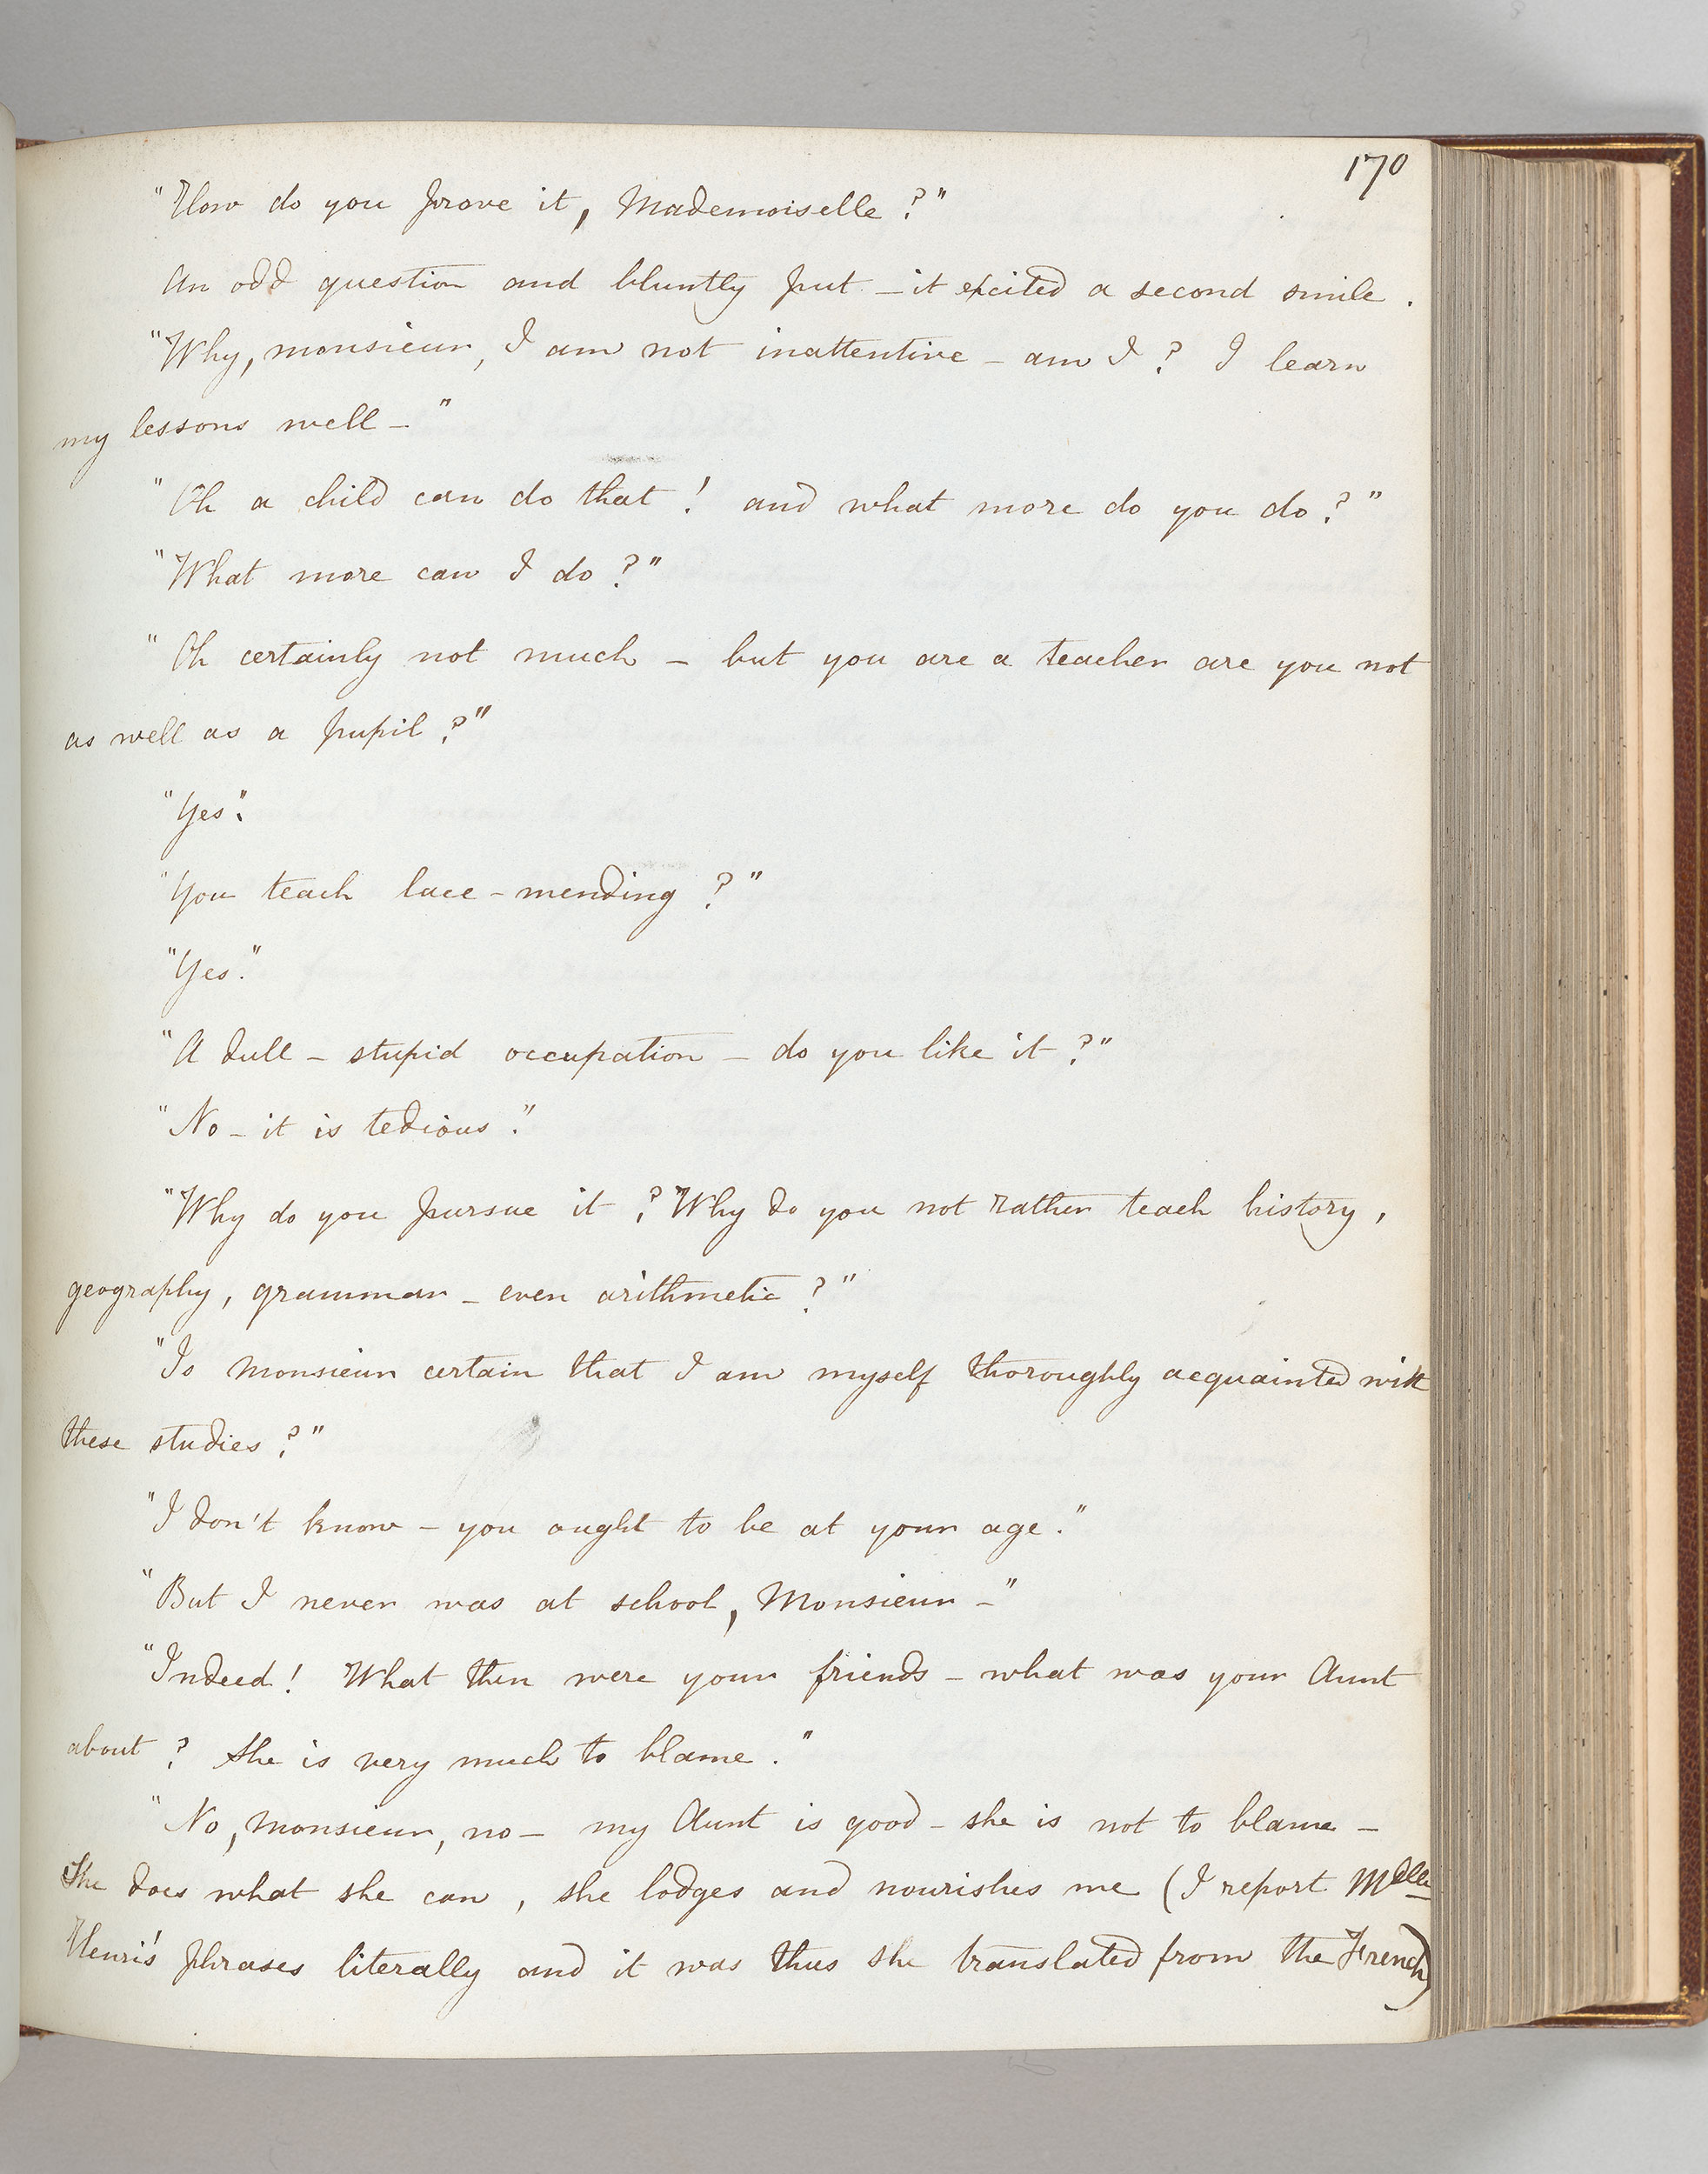 170
"How do you prove it, Mademoiselle?"
An odd question and bluntly put – it excited a second smile.
"Why, monsieur, I am not inattentive – am I? I learn
my lessons well –"
"Oh a child can do that! and what more do you do?"
"What more can I do?"
"Oh certainly not much – but you are a teacher are you not
as well as a pupil?"
"Yes".
"You teach lace-mending?"
"Yes."
"A dull – stupid occupation – do you like it?"
"No – it is tedious."
"Why do you pursue it? Why do you not rather teach history,
geography, grammar – even arithmetic?"
"Is Monsieur certain that I am myself thoroughly acquainted with
these studies?"
"I don't know – you ought to be at your age."
"But I never was at school, Monsieur –"
"Indeed! What then were your friends – what was your Aunt
about? She is very much to blame."
"No, Monsieur, no – my Aunt is good – she is not to blame –
She does what she can, she lodges and nourishes me (I report Mdlle
Henri's phrases literally and it was thus she translated from the French)